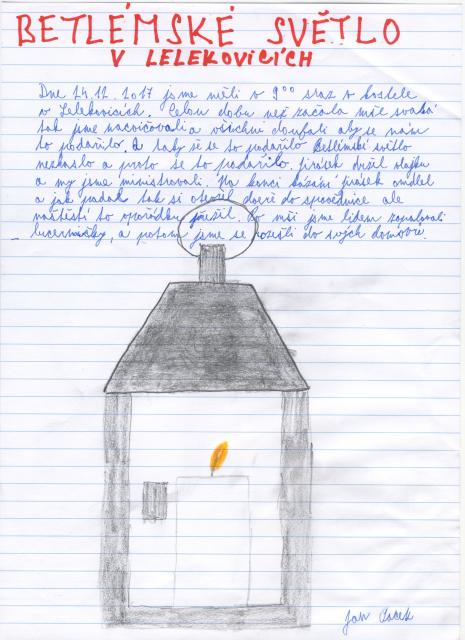 BETLÉMSKÉ SVĚTLO
V LELEKOVICÍCH
Dne 24.12.2017 jsme měli v 9⁰⁰ sraz v kostele
v Lelekovicích. Celou dobu než začala mše svatá
tak jsme nacvičovali a všichni doufali aby se nám
to podařilo. A taky si se to podařilo Betlémské světlo
nezhaslo a proto se to podařilo. Jirásek držel vlajku
a my jsme ministrovali. Na konci kázání Jirásek omdlel
a jak padal tak si otevřel dveře do zpovědnice ale
naštěstí to vpořádku přežil. Po mši jsme lidem zapalovali
lucerničky, a potom jsme se rozešli do svých domovů.
Jan